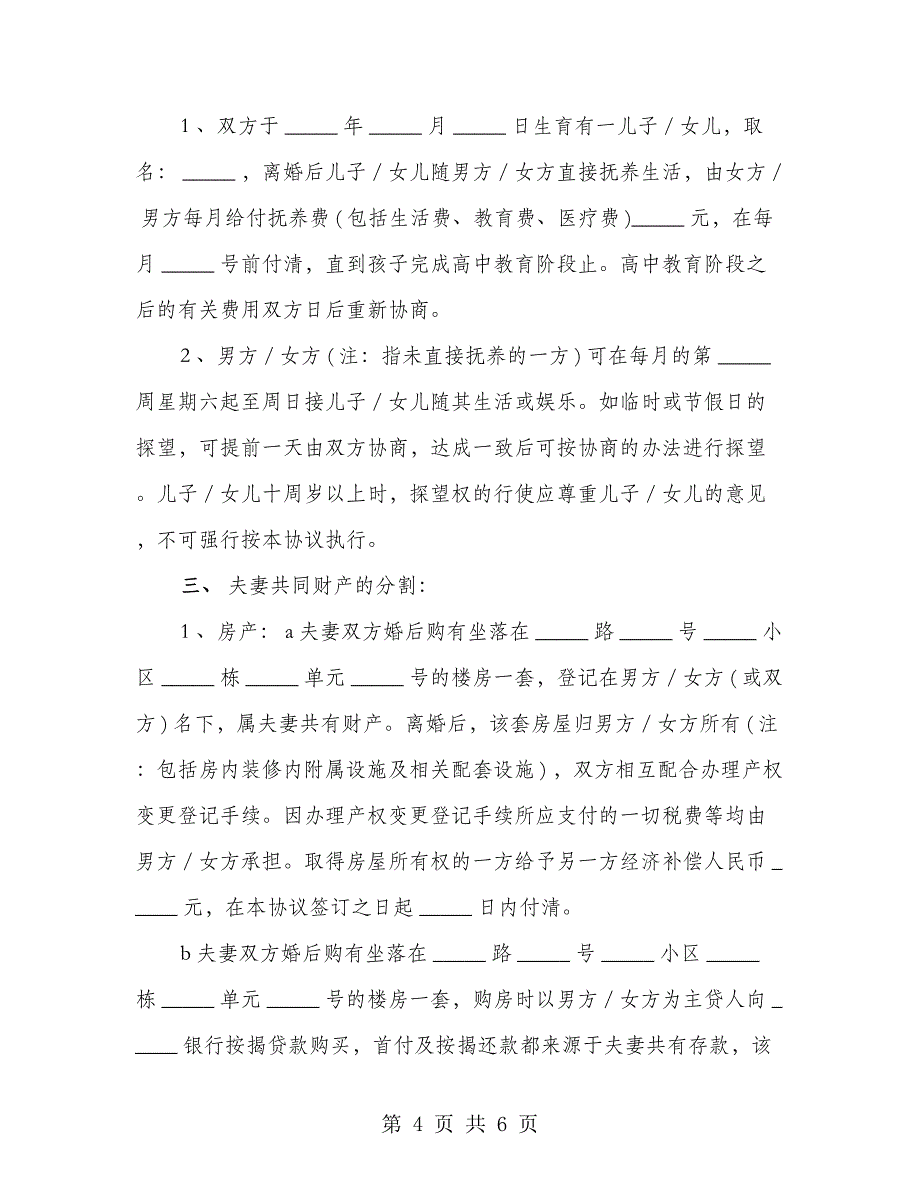 1 、双方于 _____ 年 _____ 月 _____ 日生育有一儿子／女儿，取
名： _____ ，离婚后儿子／女儿随男方／女方直接抚养生活，由女方／
男方每月给付抚养费(包括生活费、教育费、医疗费)_____ 元，在每
月 _____ 号前付清，直到孩子完成高中教育阶段止。高中教育阶段之
后的有关费用双方日后重新协商。
2 、男方／女方(注：指未直接抚养的一方)可在每月的第 _____
周星期六起至周日接儿子／女儿随其生活或娱乐。如临时或节假日的
探望，可提前一天由双方协商，达成一致后可按协商的办法进行探望
。儿子／女儿十周岁以上时，探望权的行使应尊重儿子／女儿的意见
，不可强行按本协议执行。
三、 夫妻共同财产的分割：
1 、房产： a 夫妻双方婚后购有坐落在 _____ 路 _____ 号 _____ 小
区 _____ 栋 _____ 单元 _____ 号的楼房一套，登记在男方／女方(或双
方)名下，属夫妻共有财产。离婚后，该套房屋归男方／女方所有(注
：包括房内装修内附属设施及相关配套设施)，双方相互配合办理产权
变更登记手续。因办理产权变更登记手续所应支付的一切税费等均由
男方／女方承担。取得房屋所有权的一方给予另一方经济补偿人民币 _
____ 元，在本协议签订之日起 _____ 日内付清。
b 夫妻双方婚后购有坐落在 _____ 路 _____ 号 _____ 小区 _____
栋 _____ 单元 _____ 号的楼房一套，购房时以男方／女方为主贷人向 _
____ 银行按揭贷款购买，首付及按揭还款都来源于夫妻共有存款，该
第 4 页 共 6 页